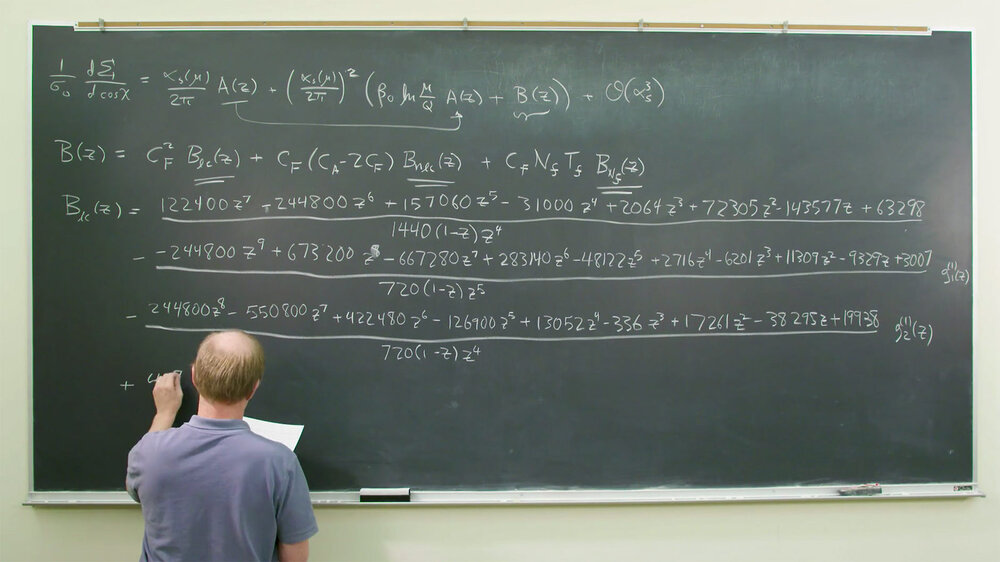 1/σ₀ dΣ/dcosχ = αₛ(μ)/2π A(z) + (αₛ(μ)/2π)² (β₀ ln μ/Q A(z) + B(z)) + O(αₛ³)
B(z) = C_F² B_lc(z) + C_F(C_A-2C_F) B_nlc(z) + C_F N_f T_f B_Nf(z)
B_lc(z) = 122400z⁷ - 244800z⁶ + 157060z⁵ - 31000z⁴ + 2064z³ + 72305z² - 143577z + 63298
1440(1-z)z⁴
- -244800z⁹ + 673200z⁸ - 667280z⁷ + 283140z⁶ - 48122z⁵ + 2716z⁴ - 6201z³ + 11309z² - 9329z + 3007 g₁⁽¹⁾(z)
720(1-z)z⁵
- 244800z⁸ - 550800z⁷ + 422480z⁶ - 126900z⁵ + 13052z⁴ - 336z³ + 17261z² - 38295z + 19938 g₂⁽¹⁾(z)
720(1-z)z⁴
+